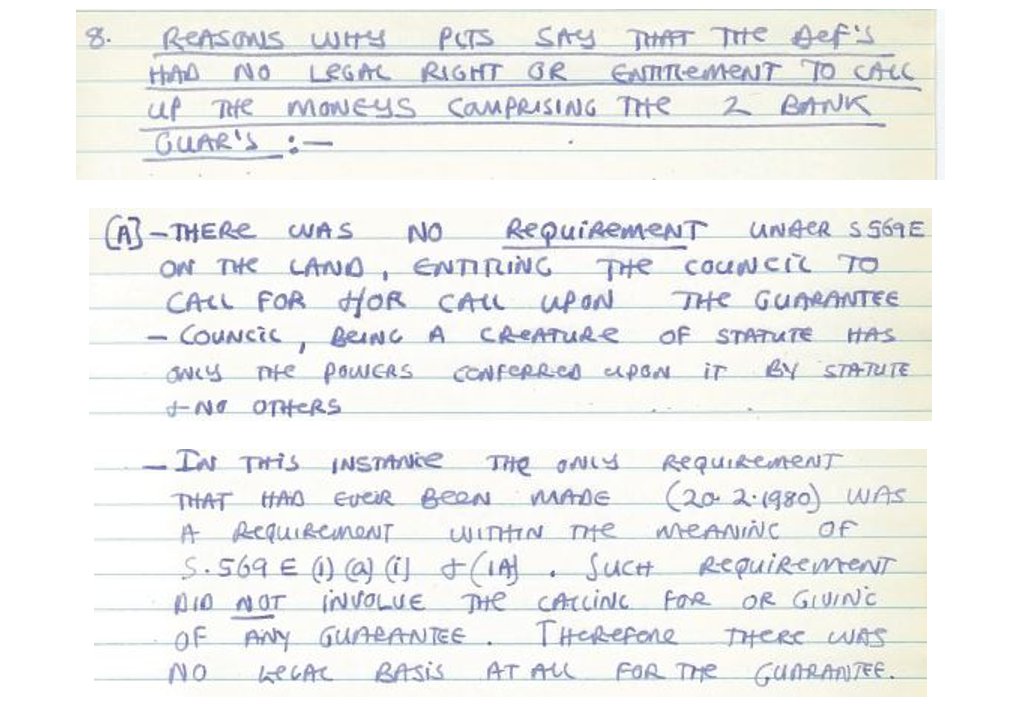 8. REASONS WHY PLTS SAY THAT THE DEF'S
HAD NO LEGAL RIGHT OR ENTITLEMENT TO CALL
UP THE MONEYS COMPRISING THE 2 BANK
GUAR'S :—
[A] - THERE WAS NO REQUIREMENT UNDER S 569E
ON THE LAND, ENTITLING THE COUNCIL TO
CALL FOR +/OR CALL UPON THE GUARANTEE
- COUNCIL, BEING A CREATURE OF STATUTE HAS
ONLY THE POWERS CONFERRED UPON IT BY STATUTE
+ NO OTHERS
- IN THIS INSTANCE THE ONLY REQUIREMENT
THAT HAD EVER BEEN MADE (20 2.1980) WAS
A REQUIREMENT WITHIN THE MEANING OF
S.569E (1) (a) (i) + (1A). SUCH REQUIREMENT
DID NOT INVOLVE THE CALLING FOR OR GIVING
OF ANY GUARANTEE. THEREFORE THERE WAS
NO LEGAL BASIS AT ALL FOR THE GUARANTEE.